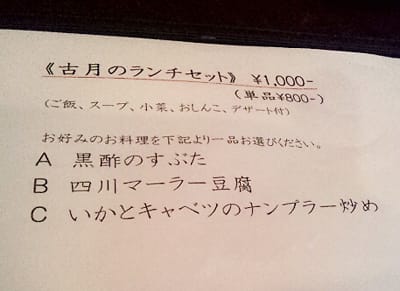 《古月のランチセット》 ¥1,000-
(単品¥800-)
(ご飯、スープ、小菜、おしんこ、デザート付)
お好みのお料理を下記より一品お選びください。
A 黒酢のすぶた
B 四川マーラー豆腐
C いかとキャベツのナンプラー炒め